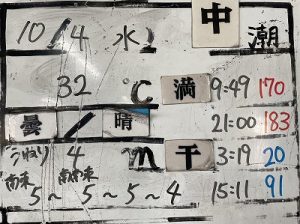 10/4 水 中潮
32 ℃ 満 9:49 170
曇/晴 21:00 183
うねり 4 m 干 3:19 20
南東 南南東 15:11 91
5~5~5~4